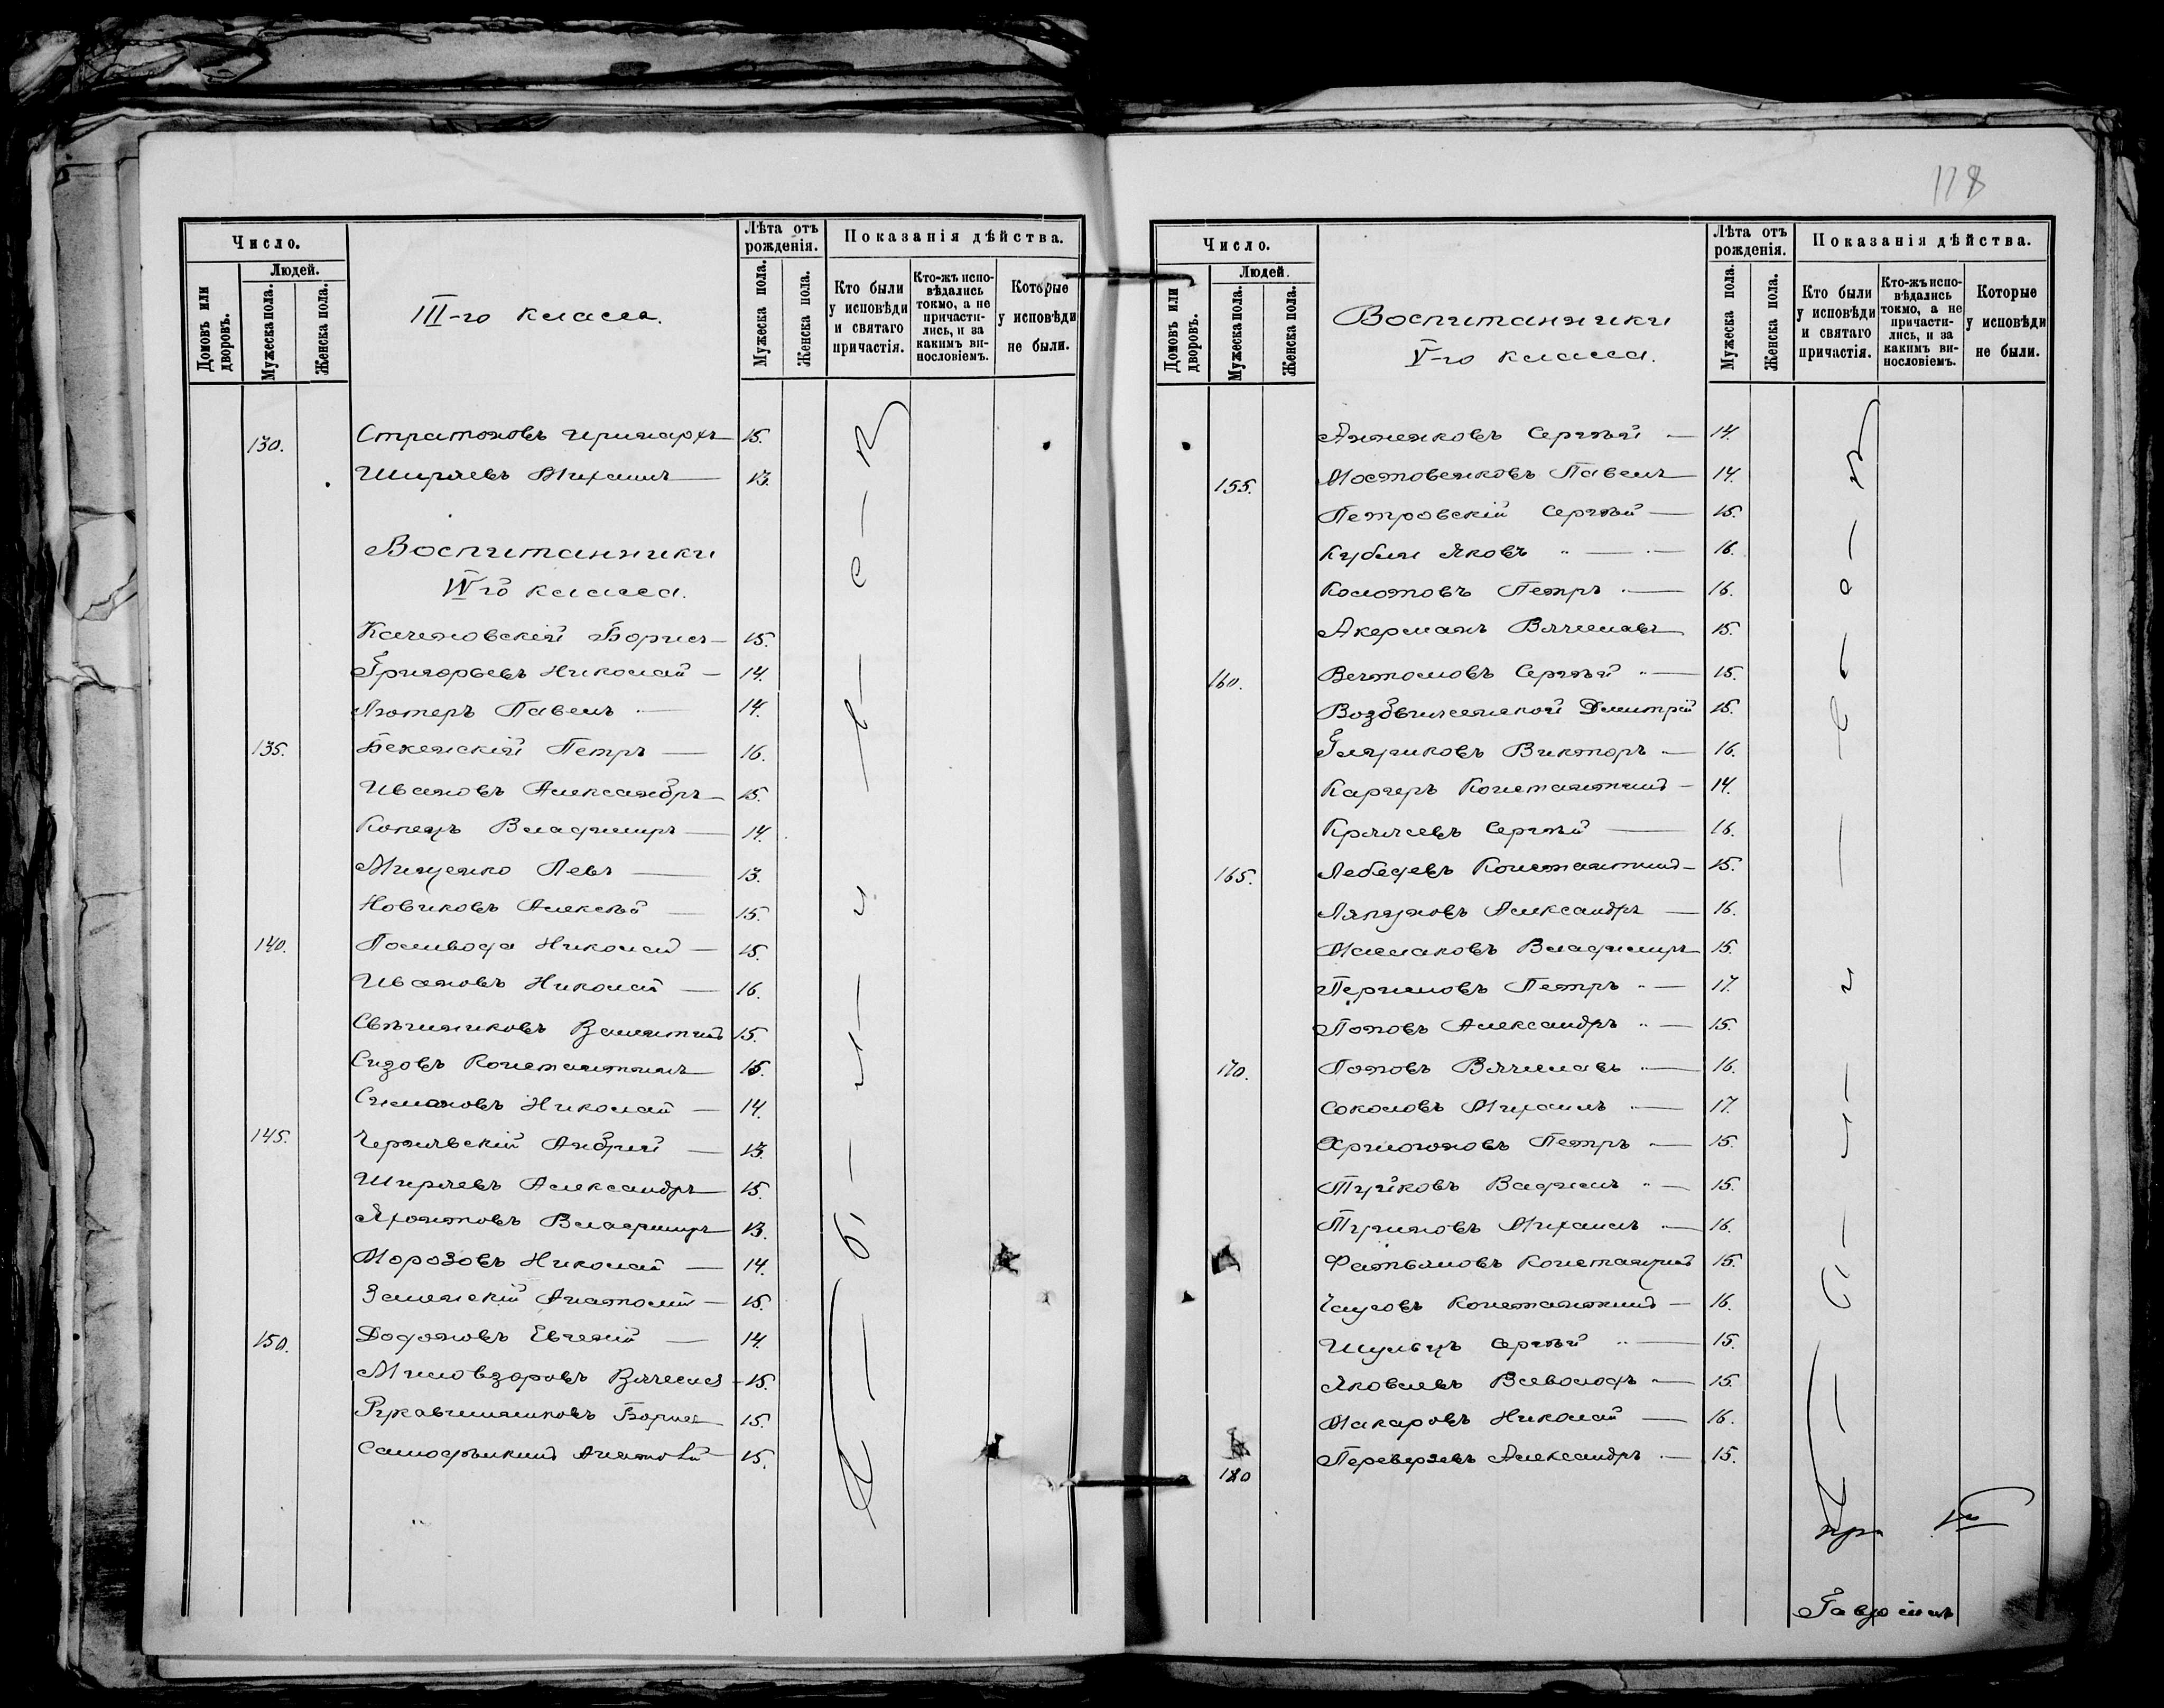 118
Число.
Людей.
Домовъ или дворовъ.
Мужеска пола.
Женска пола.
III-го класса.
Лѣта отъ рожденія.
Мужеска пола.
Женска пола.
Показанія дѣйства.
Кто были у исповѣди и святаго причастія.
Кто-жъ исповѣдались токмо, а не причастились, и за какимъ винословіемъ.
Которые у исповѣди не были.
130. Стратоновъ Иринархъ 15.
Ширяевъ Михаилъ 13.
Воспитанники
IV-го класса.
Качановскій Борисъ 15.
Григорьевъ Николай 14.
Лютеръ Павелъ 14.
135. Бекенскій Петръ 16.
Ивановъ Александръ 15.
Копецъ Владимиръ 14.
Мищенко Левъ 13.
Новиковъ Алексѣй 15.
140. Поливода Николай 15.
Ивановъ Николай 16.
Свѣчниковъ Валентинъ 15.
Сизовъ Константинъ 15.
Симановъ Николай 14.
145. Чернявскій Андрей 13.
Ширяевъ Александръ 15.
Яхонтовъ Владимиръ 13.
Морозовъ Николай 14.
Заленскій Анатолій 15.
150. Додоновъ Евгеній 14.
Миловзоровъ Вячеславъ 15.
Рукавишниковъ Борисъ 15.
Самодѣлкинъ Анатолій 15.
Число.
Людей.
Домовъ или дворовъ.
Мужеска пола.
Женска пола.
Воспитанники
V-го класса.
Лѣта отъ рожденія.
Мужеска пола.
Женска пола.
Показанія дѣйства.
Кто были у исповѣди и святаго причастія.
Кто-жъ исповѣдались токмо, а не причастились, и за какимъ винословіемъ.
Которые у исповѣди не были.
Анненковъ Сергѣй 14.
155. Мостовенковъ Павелъ 14.
Петровскій Сергѣй 15.
Кубли Яковъ 16.
Колотовъ Петръ 16.
Акерманъ Вячеславъ 15.
160. Вечтомовъ Сергѣй 15.
Воздвиженской Дмитрій 15.
Гляриковъ Викторъ 16.
Каргеръ Константинъ 14.
Крячевъ Сергѣй 16.
165. Лебедевъ Константинъ 15.
Ляпуновъ Александръ 16.
Маслаковъ Владимиръ 15.
Пермовъ Петръ 17.
Поповъ Александръ 15.
170. Поповъ Вячеславъ 16.
Соколовъ Михаилъ 17.
Петръ 15.
Туйковъ Вадимъ 15.
Туриновъ Михаилъ 16.
Фатьяновъ Константинъ 15.
Чауловъ Константинъ 16.
Шульцъ Сергѣй 15.
Яковлевъ Всеволодъ 15.
Макаровъ Николай 16.
180 Переверзевъ Александръ 15.
Гавріилъ